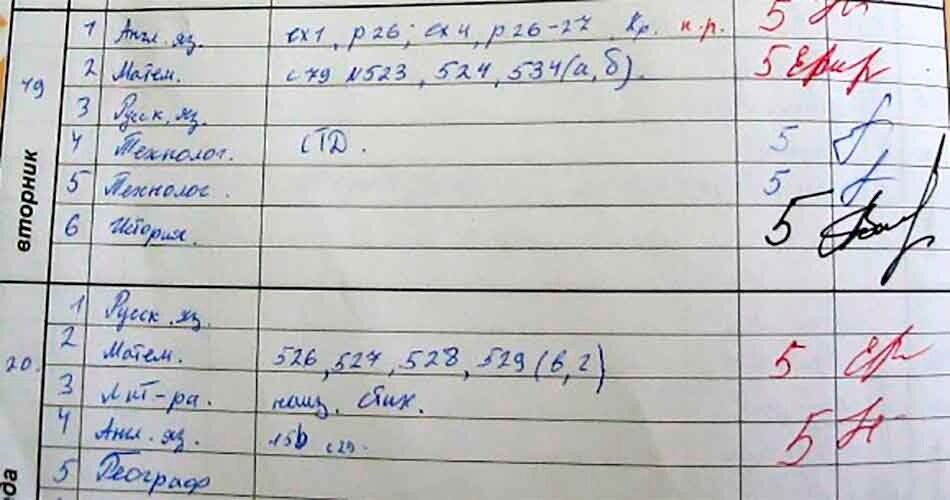 19
вторник
1 Англ. яз. ex1, p26; ex4, p26-27 Кр. к.р. 5
2 Матем. с79 №523, 524, 534(а, б). 5
3 Русск. яз.
4 Технолог. СТД. 5
5 Технолог. 5
6 История. 5
20.
1 Русск. яз.
2 Матем. 526, 527, 528, 529 (в, г) 5
3 Лит-ра. наиз. стих.
4 Англ. яз. 15b с29. 5
5 Географ